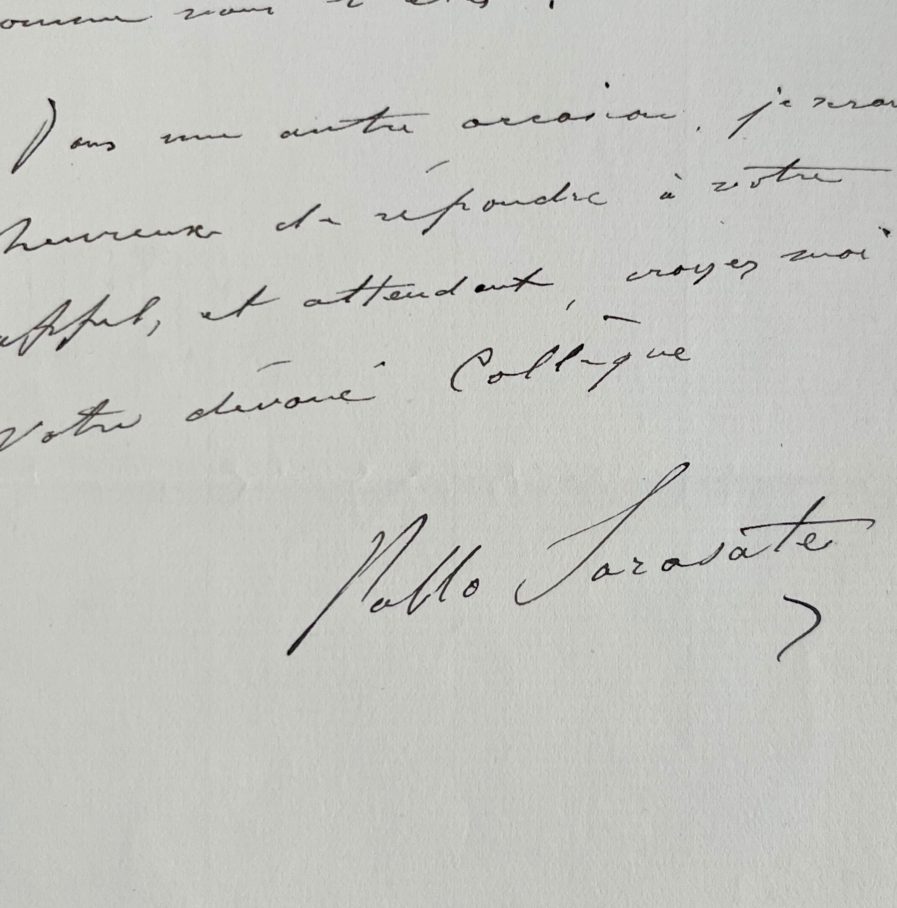 comme vous l'êtes.
Dans une autre occasion, je serai
heureux de répondre à votre
appel, et attendant, croyez moi
Votre dévoué Collègue
Pablo Sarasate